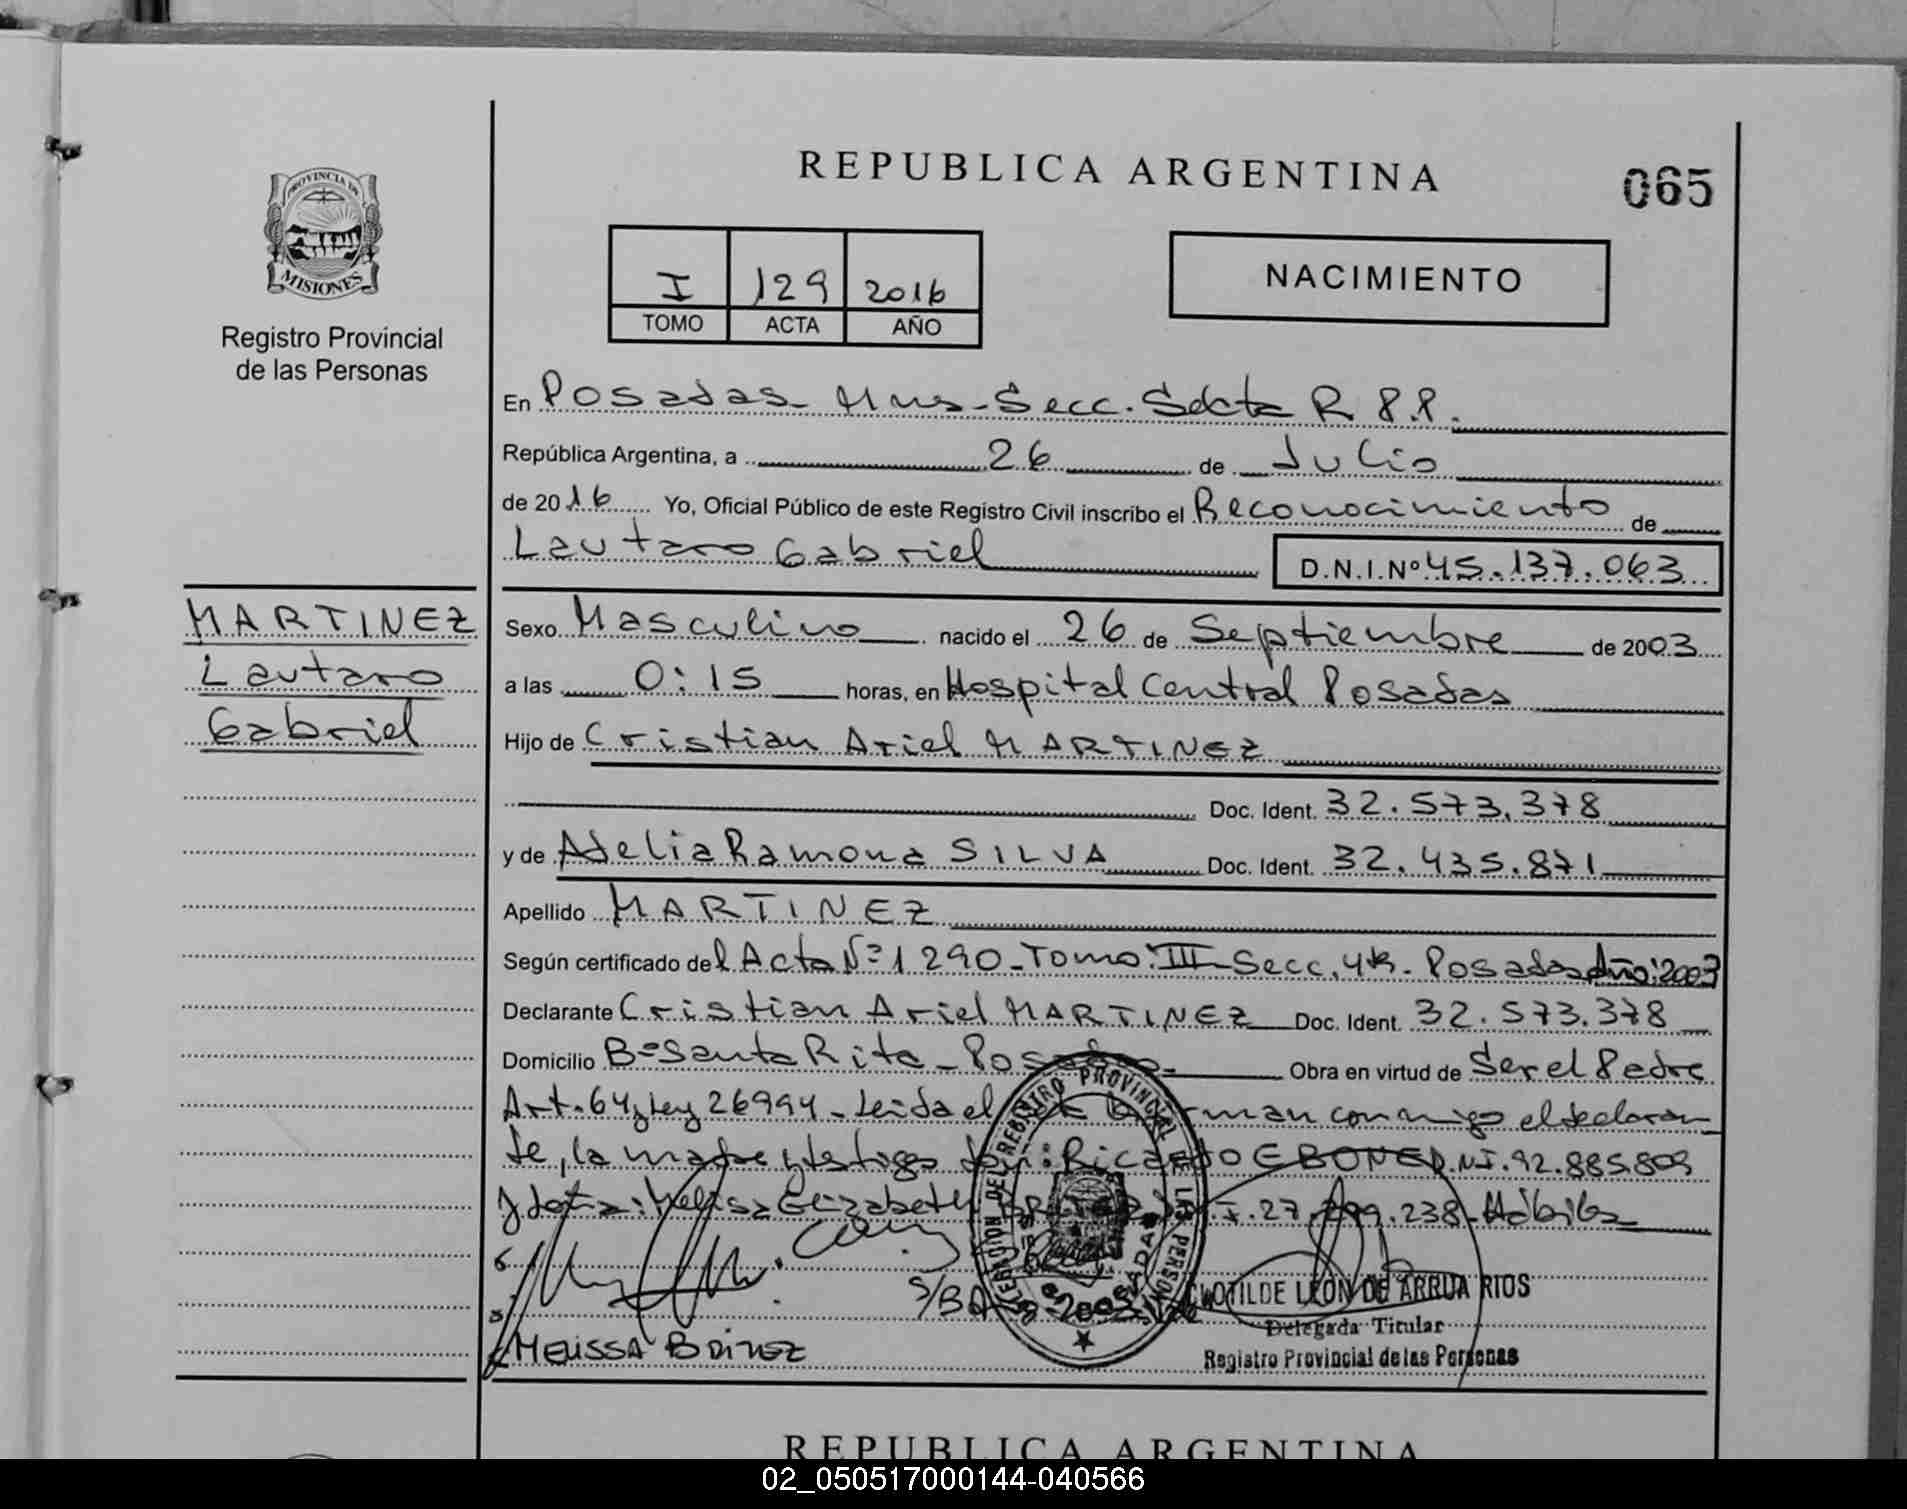 REPUBLICA ARGENTINA
065
PROVINCIA DE
MISIONES
Registro Provincial
de las Personas
I 129 2016
TOMO ACTA AÑO
NACIMIENTO
En Posadas - Mnes - Secc. Sexta R.P.P.
República Argentina, a 26 de Julio
de 2016 Yo, Oficial Público de este Registro Civil inscribo el Reconocimiento de
Lautaro Gabriel D.N.I.Nº 45.137.063
MARTINEZ
Lautaro
Gabriel
Sexo Masculino nacido el 26 de Septiembre de 2003
a las 0:15 horas, en Hospital Central Posadas
Hijo de Cristian Ariel MARTINEZ
Doc. Ident. 32.573.378
y de Adelia Ramona SILVA Doc. Ident. 32.435.871
Apellido MARTINEZ
Según certificado del Acta Nº 1290 - Tomo: III - Secc. 4ta - Posadas Año: 2003
Declarante Cristian Ariel MARTINEZ Doc. Ident. 32.573.378
Domicilio Bº Santa Rita - Posadas - Obra en virtud de Ser el Padre
Art. 64 Ley 26994 - Leída el firman conmigo el declaran
te, la madre y testigos don: Ricardo D.N.I. 92.885.809
y doña: Melisa Elizabeth 27. .238 - Hábiles
DELEGACION DEL REGISTRO PROVINCIAL DE LAS PERSONAS
POSADAS
CLOTILDE LEON DE ARRUA RIOS
Delegada Titular
Registro Provincial de las Personas
MELISSA
REPUBLICA ARGENTINA
02_050517000144-040566